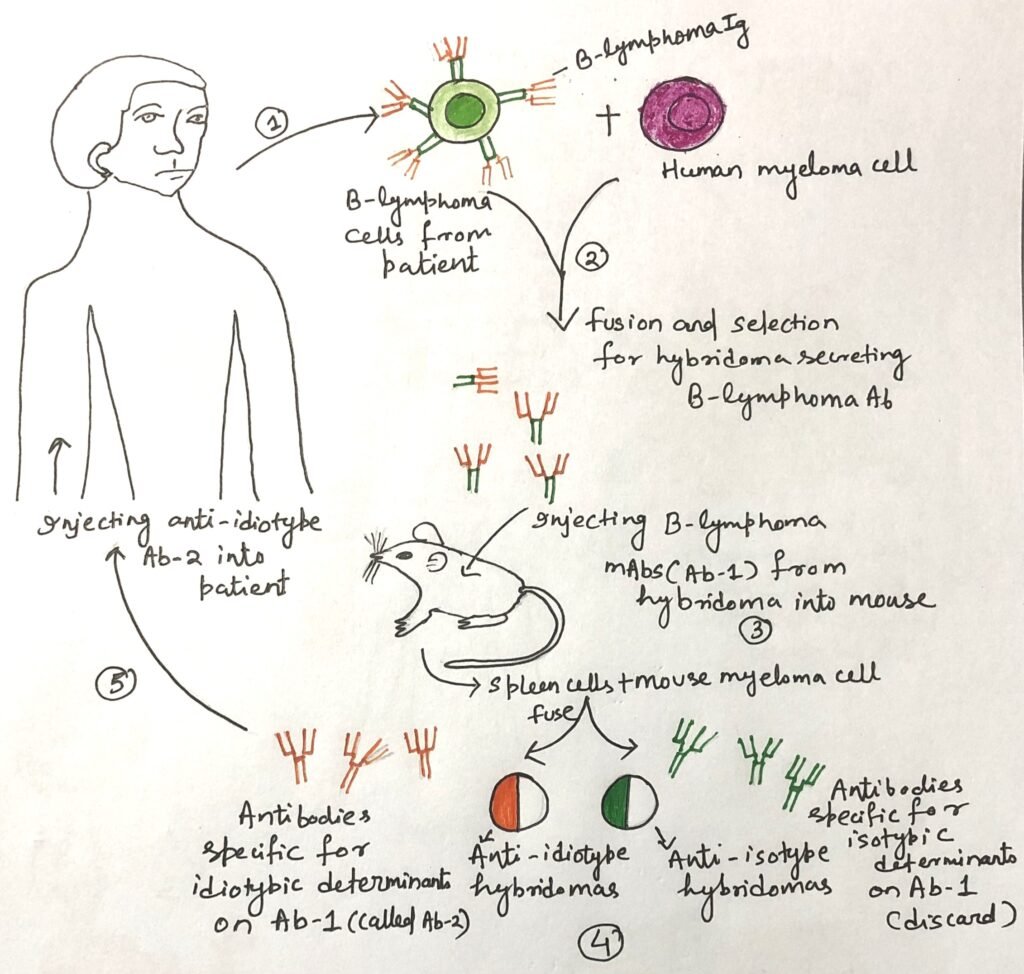 ①
B-lymphoma Ig
+
B-lymphoma
cells from
patient
Human myeloma cell
②
fusion and selection
for hybridoma secreting
B-lymphoma Ab
Injecting B-lymphoma
mAbs (Ab-1) from
hybridoma into mouse
③
Spleen cells + mouse myeloma cell
fuse
Anti-idiotype
hybridomas
Anti-isotype
hybridomas
④
Antibodies
specific for
isotypic
determinants
on Ab-1
(discard)
Antibodies
specific for
idiotypic determinants
on Ab-1 (called Ab-2)
⑤
Injecting anti-idiotype
Ab-2 into
patient